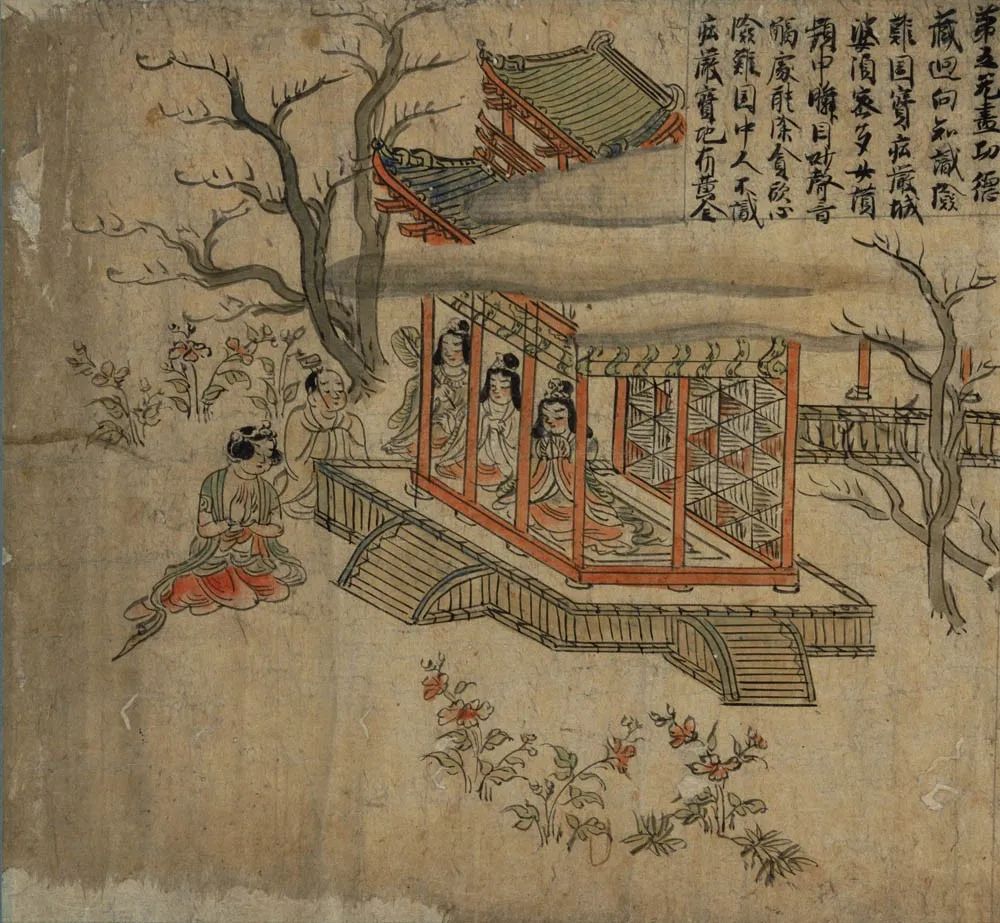 第五无盡功德
藏迴向知識險
難國寶莊嚴城
婆須密多女讃
頻申瞬目妙聲音
觸處能除貪欲心
險難國中人不識
莊嚴寶地有黃金